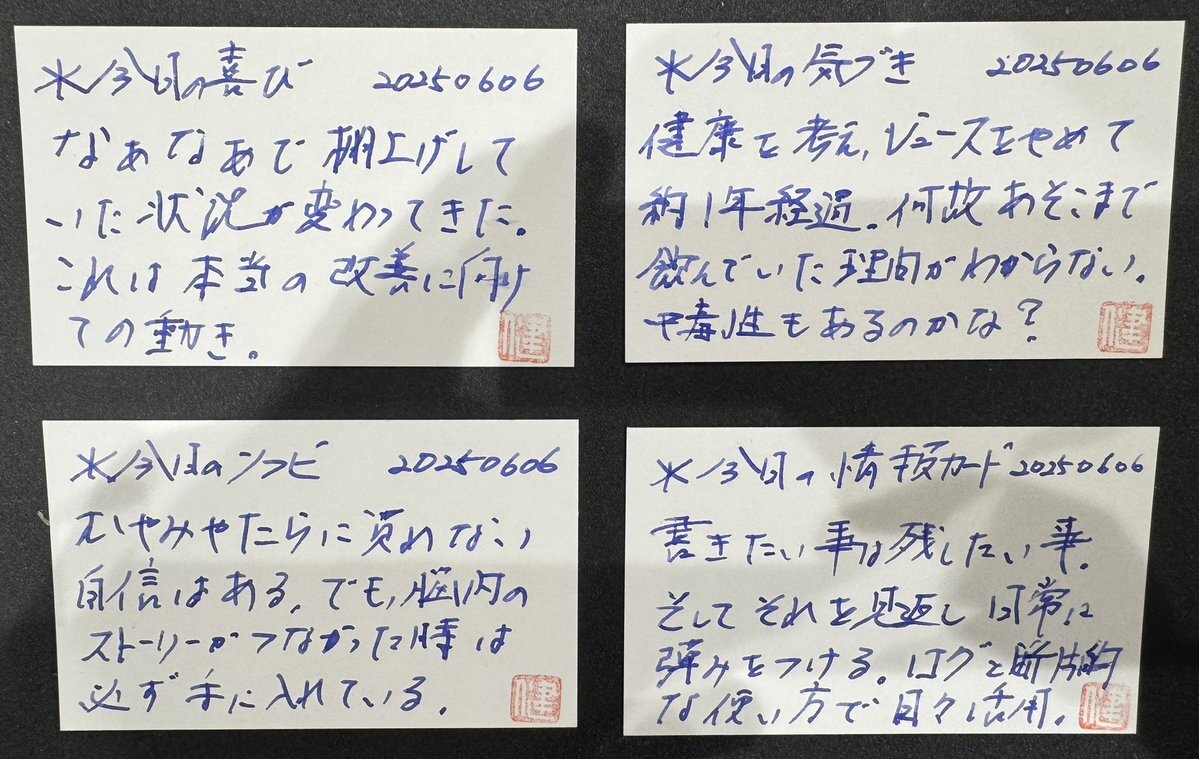 ※今日の喜び 20250606
なあなあで棚上げして
いた状況が変わってきた。
これは本当の改善に向け
ての動き。
健
※今日の気づき 20250606
健康を考え、ジュースをやめて
約1年経過。何故あそこまで
飲んでいた理由がわからない。
中毒性もあるのかな?
健
※今日のソフビ 20250606
むやみやたらに集めない
自信はある。でも、脳内の
ストーリーがつながった時は
必ず手に入れている。
健
※今日の情報カード 20250606
書きたい事は残したい事。
そしてそれを見返し日常に
弾みをつける。ログと断片的
な使い方で日々活用。
健